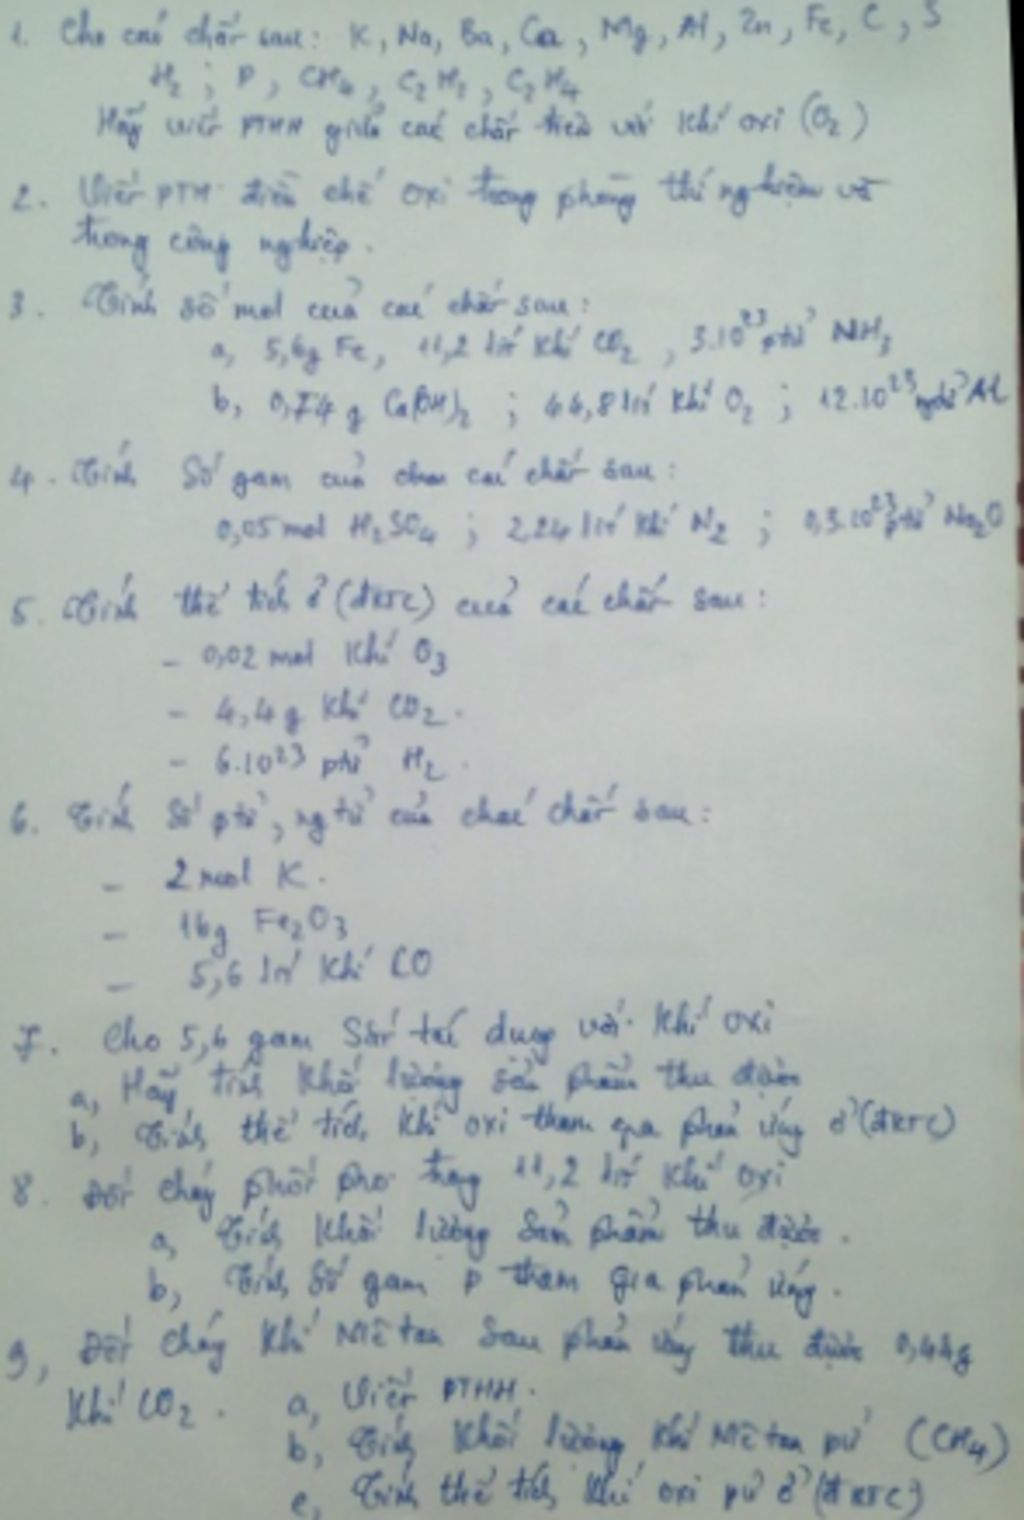 1. Cho các chất sau: K, Na, Ba, Ca, Mg, Al, Zn, Fe, C, S
H2; P, CH4, C2H2, C2H4
Hãy viết PTHH giữa các chất trên với khí oxi (O2)
2. Viết PTH điều chế oxi trong phòng thí nghiệm và
trong công nghiệp.
3. Tính số mol của các chất sau:
a, 5,6g Fe, 11,2 lít khí CO2, 3.10^23 ptử NH3
b, 0,74 g Ca(OH)2; 44,8 lít khí O2; 12.10^23 ngtử Al
4. Tính số gam của các chất sau:
0,05 mol H2SO4; 2,24 lít khí N2; 0,3.10^23 ptử Na2O
5. Tính thể tích ở (đktc) của các chất sau:
- 0,02 mol khí O3
- 4,4g khí CO2.
- 6.10^23 ptử H2.
6. Tính số ptử, ngtử của các chất sau:
- 2 mol K.
- 16g Fe2O3
- 5,6 lít khí CO
7. Cho 5,6 gam Sắt tác dụng với khí oxi
a, Hãy tính khối lượng sản phẩm thu được
b, Tính thể tích khí oxi tham gia phản ứng ở (đktc)
8. Đốt cháy phốt pho trong 11,2 lít khí oxi
a, Tính khối lượng sản phẩm thu được.
b, Tính số gam P tham gia phản ứng.
9, Đốt cháy khí Mêtan sau phản ứng thu được 0,44g
khí CO2. a, Viết PTHH.
b, Tính khối lượng khí Mêtan pứ (CH4)
c, Tính thể tích khí oxi pứ ở (đktc)